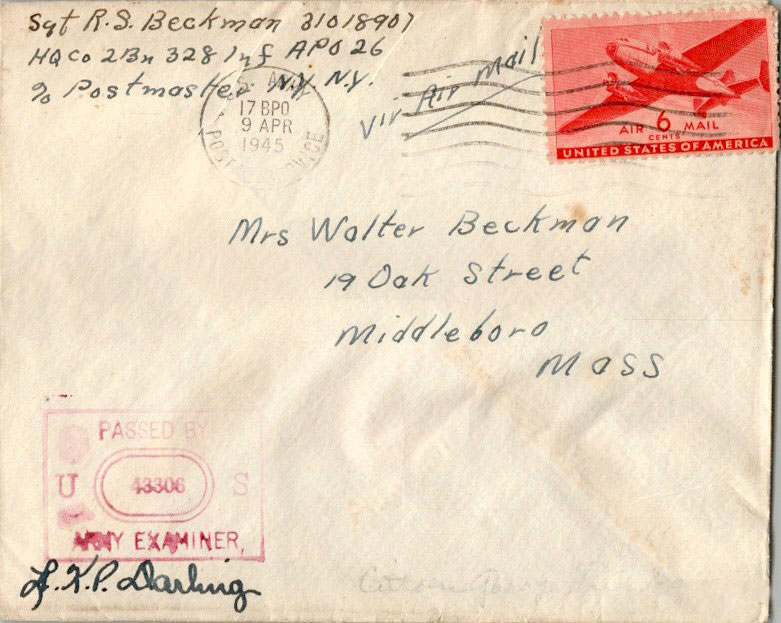 Sgt R.S. Beckman 31018907
HQ Co 2Bn 328 Inf APO 26
c/o Postmaster N.Y. N.Y.
Via Air Mail
U.S. ARMY
17 BPO
9 APR
1945
POSTAL SERVICE
AIR 6 MAIL
CENTS
UNITED STATES OF AMERICA
Mrs Walter Beckman
19 Oak Street
Middleboro
Mass
PASSED BY
U 43306 S
ARMY EXAMINER
K.P. Darling